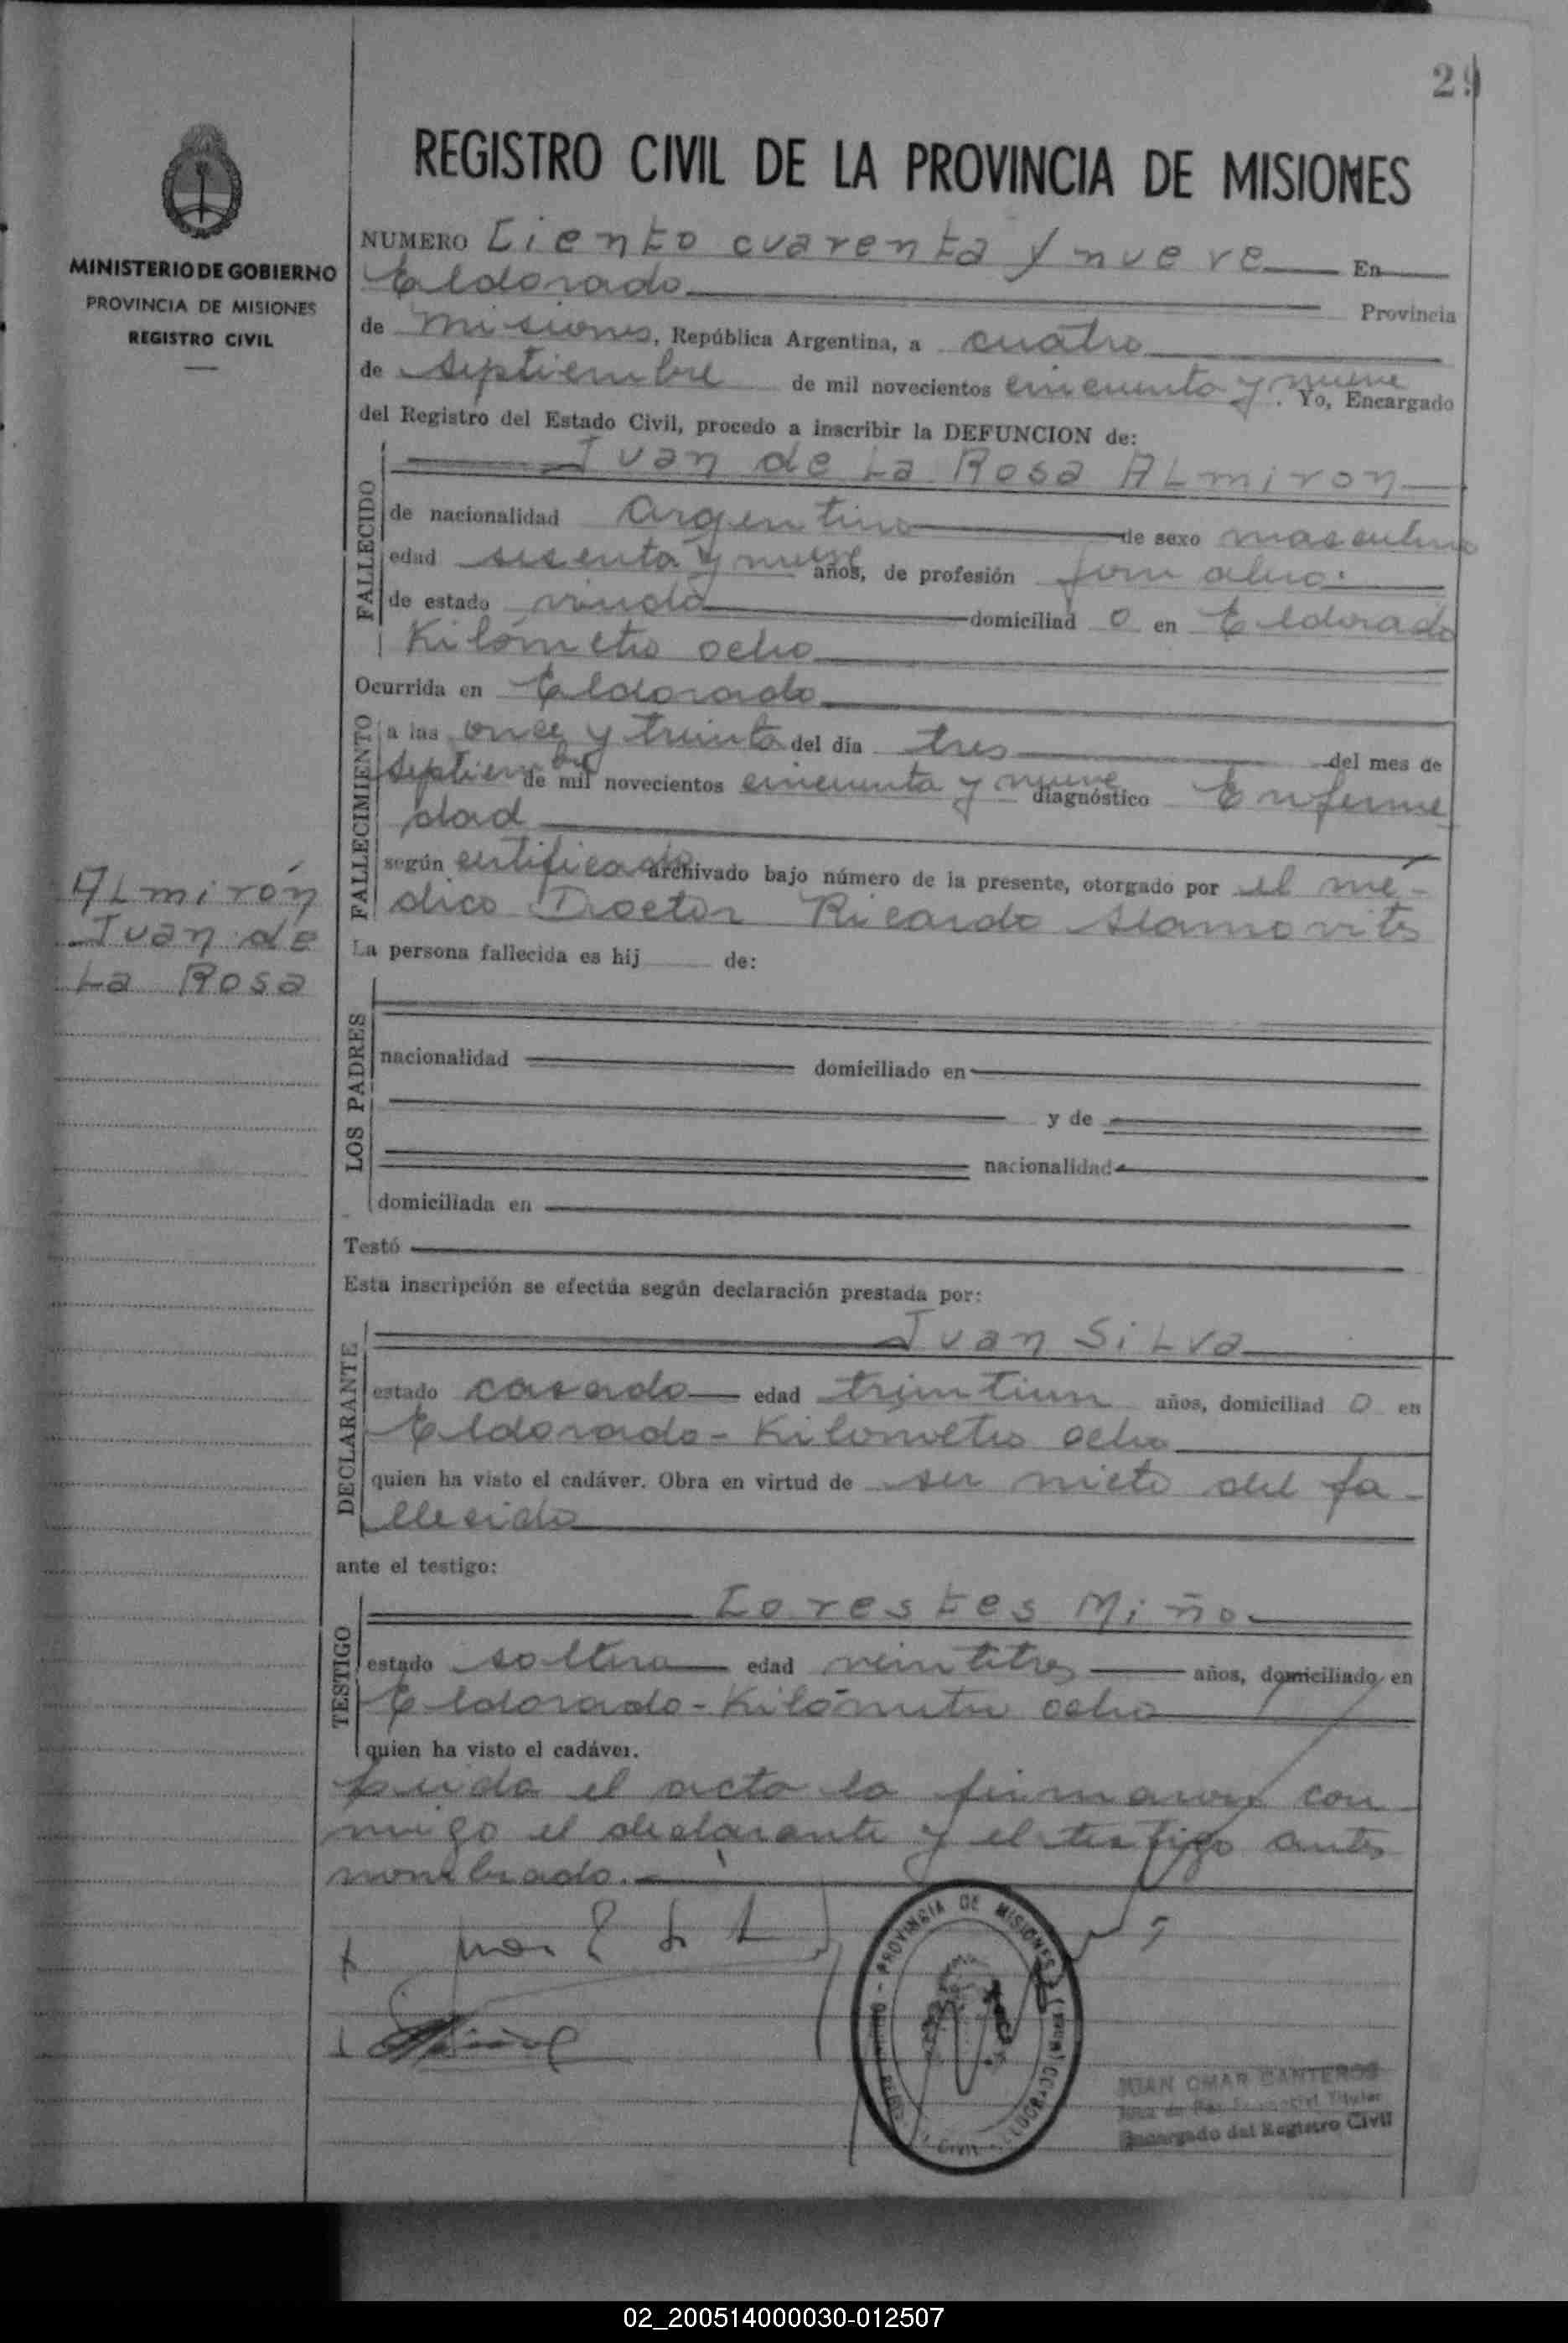 29
REGISTRO CIVIL DE LA PROVINCIA DE MISIONES
MINISTERIO DE GOBIERNO
PROVINCIA DE MISIONES
REGISTRO CIVIL
NUMERO Ciento cuarenta y nueve En
Eldorado Provincia
de Misiones, República Argentina, a cuatro
de Septiembre de mil novecientos cincuenta y nueve. Yo, Encargado
del Registro del Estado Civil, procedo a inscribir la DEFUNCION de:
Juan de La Rosa ALmiron
FALLECIDO
de nacionalidad argentino de sexo masculino
edad sesenta y nueve años, de profesión jornalero.
de estado viudo domiciliad o en Eldorado
Kilómetro ocho
Ocurrida en Eldorado
FALLECIMIENTO
a las once y treinta del día tres del mes de
Septiembre de mil novecientos cincuenta y nueve diagnóstico Enferme
dad
según certificado archivado bajo número de la presente, otorgado por el mé-
dico Doctor Ricardo
ALmirón
Juan de
La Rosa
La persona fallecida es hij de:
LOS PADRES
nacionalidad domiciliado en
y de
nacionalidad
domiciliada en
Testó
Esta inscripción se efectúa según declaración prestada por:
Juan SiLva
DECLARANTE
estado casado edad treintiun años, domiciliad o en
Eldorado - Kilómetro ocho
quien ha visto el cadáver. Obra en virtud de ser nieto del fa-
llesido
ante el testigo:
Corestes Miño
TESTIGO
estado soltero edad veintitres años, domiciliado en
Eldorado - Kilómetro ocho
quien ha visto el cadáver.
Leida el acta la firmaron con
migo el declarante y el testigo antes
nombrado.-
PROVINCIA DE MISIONES
JUAN OMAR CANTEROS
Encargado del Registro Civil
02_200514000030-012507